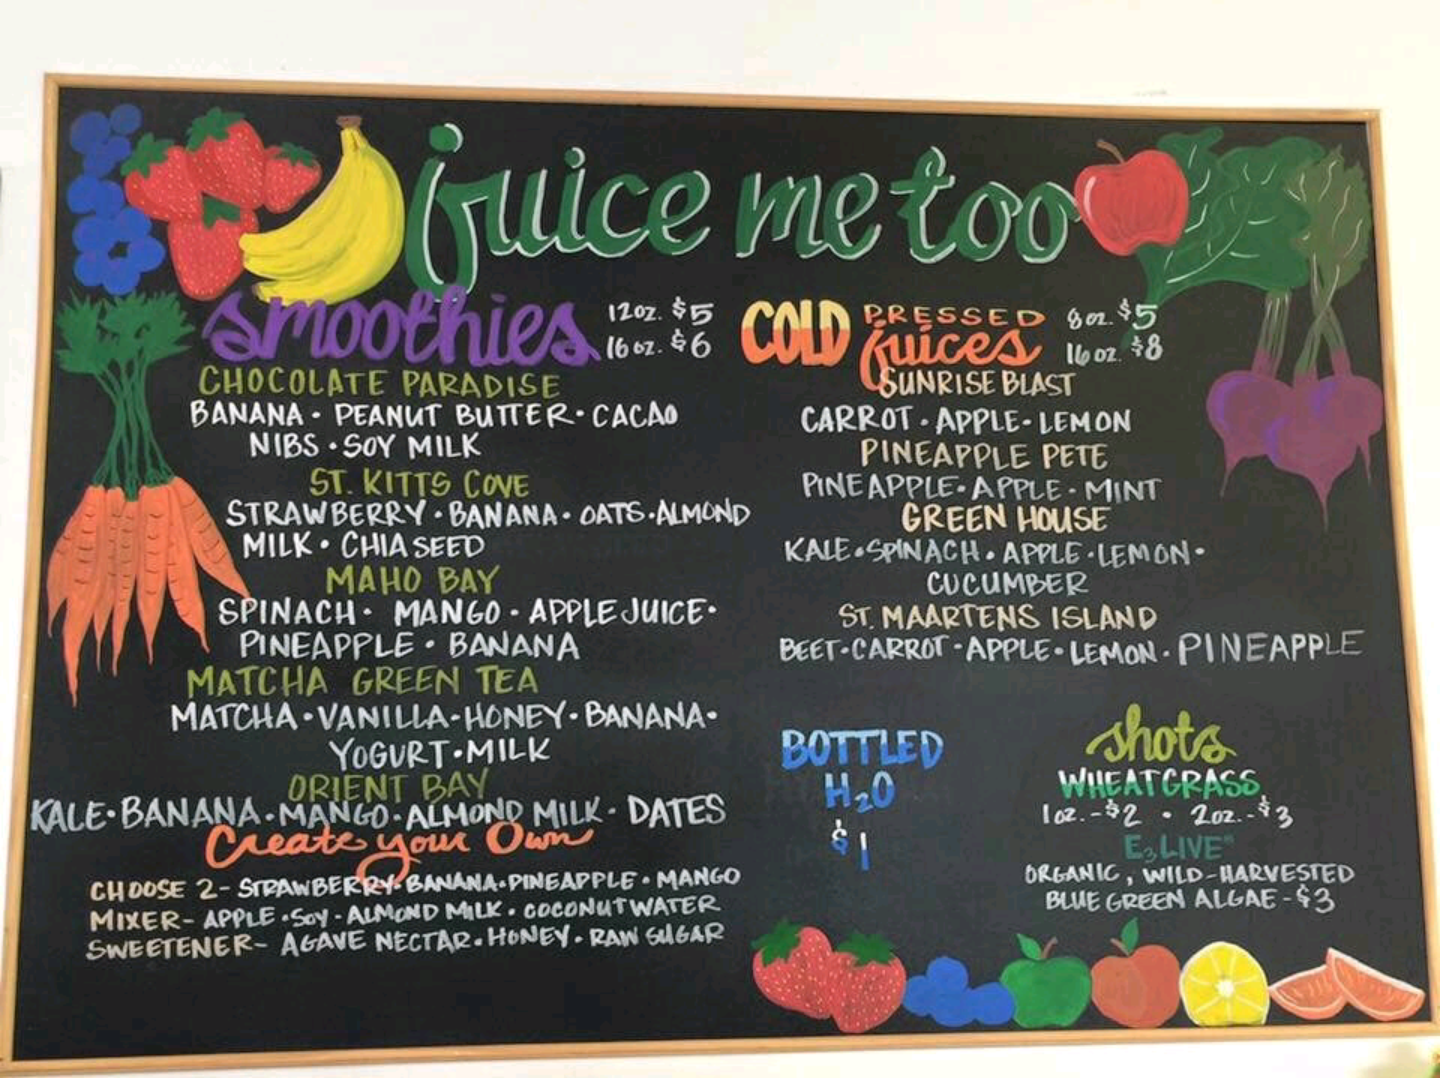 juice me too
smoothies 12oz. $5
16oz. $6
CHOCOLATE PARADISE
BANANA · PEANUT BUTTER · CACAO
NIBS · SOY MILK
ST. KITTS COVE
STRAWBERRY · BANANA · OATS · ALMOND
MILK · CHIA SEED
MAHO BAY
SPINACH · MANGO · APPLE JUICE ·
PINEAPPLE · BANANA
MATCHA GREEN TEA
MATCHA · VANILLA · HONEY · BANANA ·
YOGURT · MILK
ORIENT BAY
KALE · BANANA · MANGO · ALMOND MILK · DATES
Create your Own
CHOOSE 2 - STRAWBERRY · BANANA · PINEAPPLE · MANGO
MIXER - APPLE · SOY · ALMOND MILK · COCONUT WATER
SWEETENER - AGAVE NECTAR · HONEY · RAW SUGAR
COLD PRESSED juices 8oz. $5
16oz $8
SUNRISE BLAST
CARROT · APPLE · LEMON
PINEAPPLE PETE
PINEAPPLE · APPLE · MINT
GREEN HOUSE
KALE · SPINACH · APPLE · LEMON ·
CUCUMBER
ST. MAARTENS ISLAND
BEET · CARROT · APPLE · LEMON · PINEAPPLE
BOTTLED
H₂O
$1
shots
WHEATGRASS
1oz. - $2 · 2oz. - $3
E₃LIVE®
ORGANIC, WILD-HARVESTED
BLUE GREEN ALGAE - $3